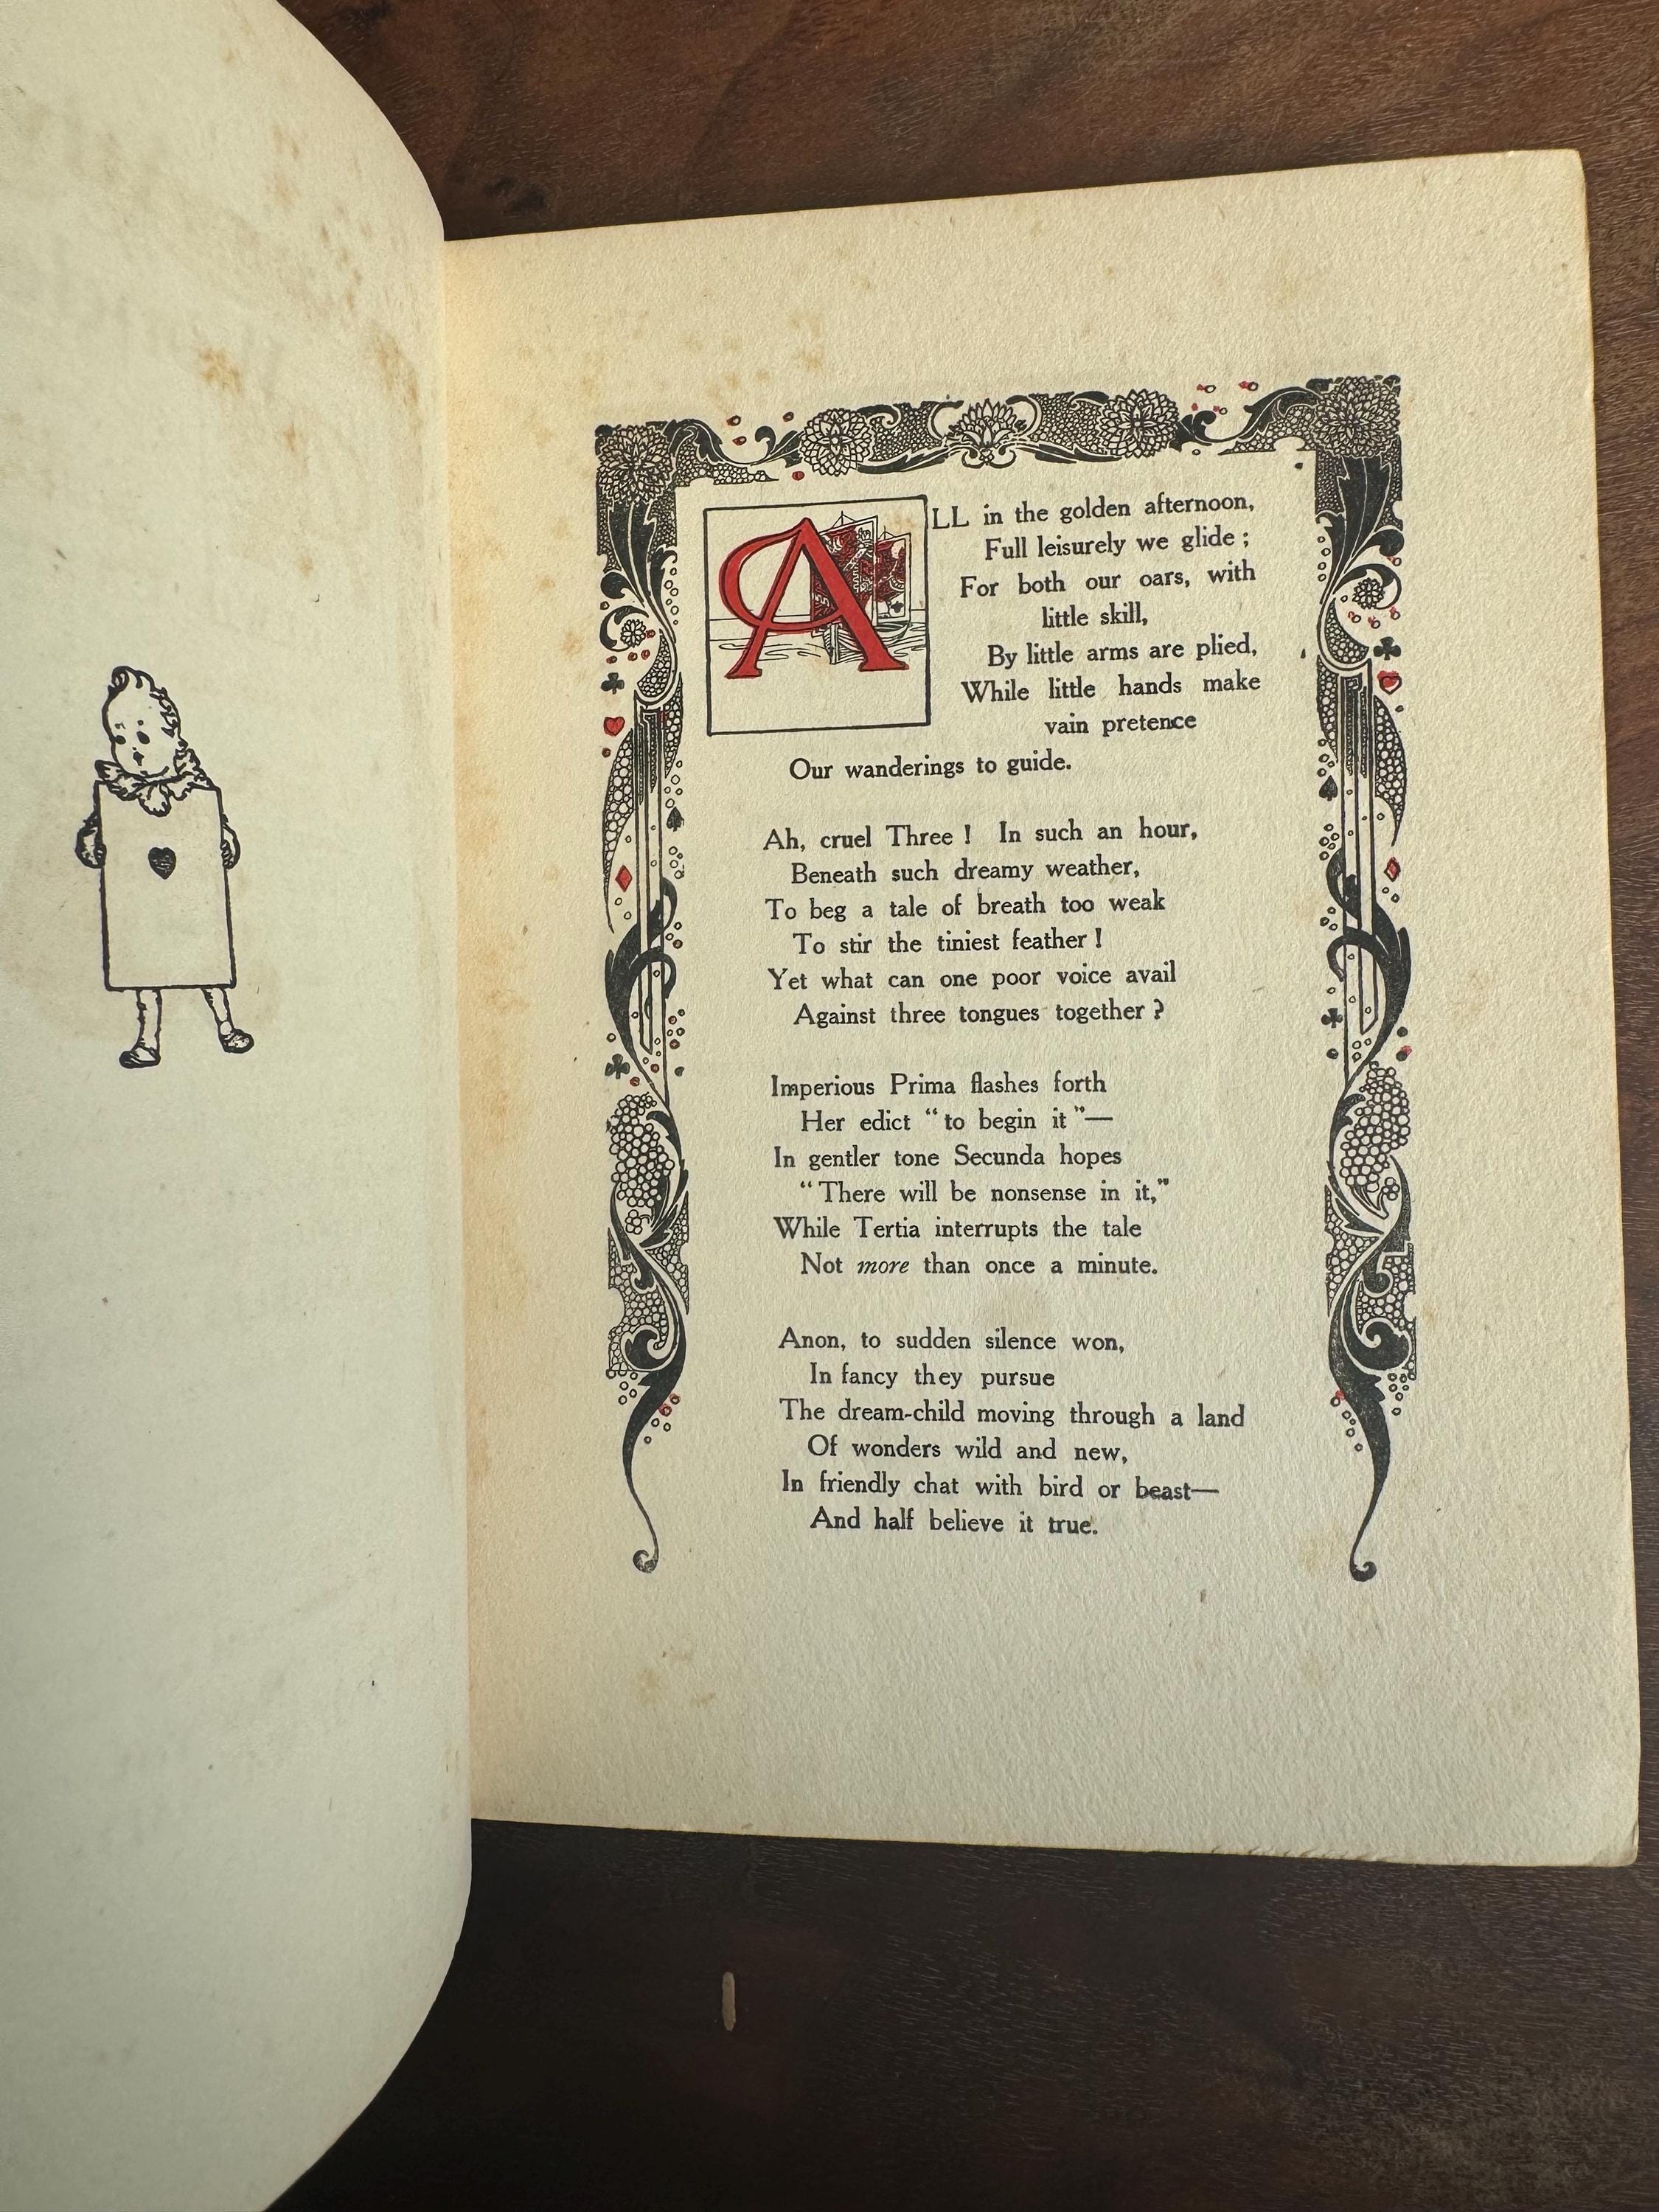 ALL in the golden afternoon,
Full leisurely we glide ;
For both our oars, with
little skill,
By little arms are plied,
While little hands make
vain pretence
Our wanderings to guide.
Ah, cruel Three ! In such an hour,
Beneath such dreamy weather,
To beg a tale of breath too weak
To stir the tiniest feather !
Yet what can one poor voice avail
Against three tongues together ?
Imperious Prima flashes forth
Her edict “ to begin it ”—
In gentler tone Secunda hopes
“ There will be nonsense in it,”
While Tertia interrupts the tale
Not more than once a minute.
Anon, to sudden silence won,
In fancy they pursue
The dream-child moving through a land
Of wonders wild and new,
In friendly chat with bird or beast—
And half believe it true.